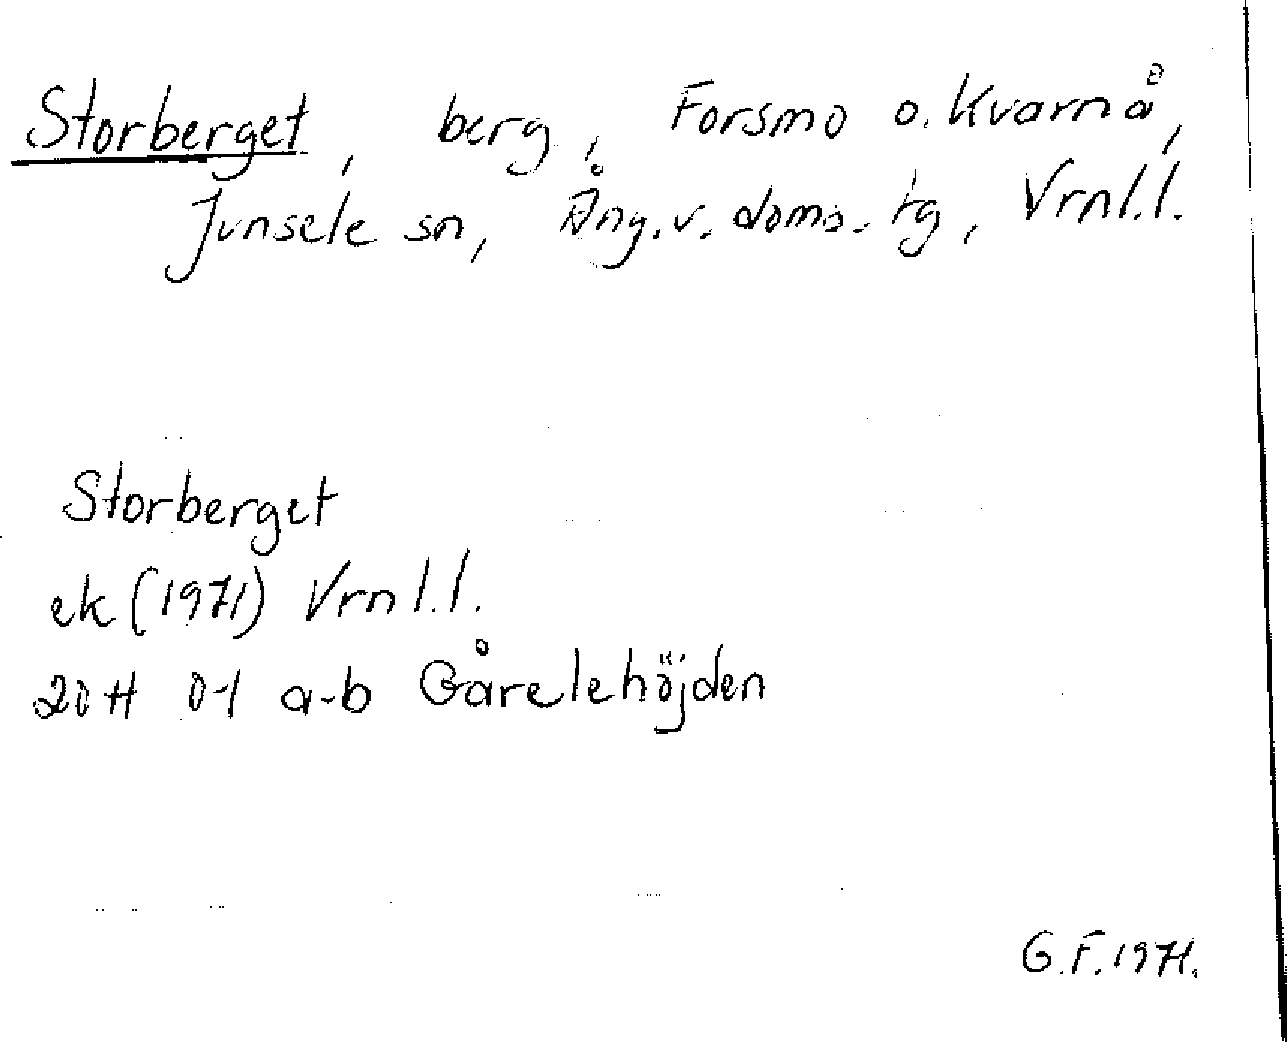 Storberget, berg, Forsmo o. Kvarnå,
Junsele sn, Ång. v. doms. tg, Vrnl.l.
Storberget
ek (1971) Vrnl.l.
20H 0-1 a-b Gårelehöjden
G.F. 1971.